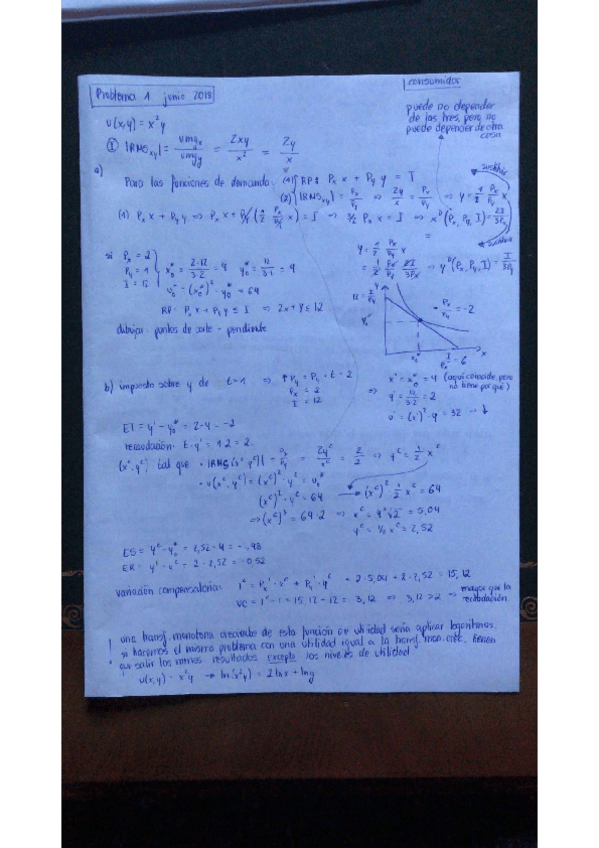 Problema 1 junio 2018
consumidor
puede no depender
de las tres, pero no
puede depender de otra
cosa
u(x,y) = x²y
① |RMS_xy| = Umg_x / Umg_y = 2xy / x² = 2y / x
a)
Para las funciones de demanda (1) RP: P_x x + P_y y = I
(2) |RMS_xy| = P_x / P_y ⇒ 2y / x = P_x / P_y ⇒ y = 1/2 P_x / P_y x
(1) P_x x + P_y y ⇒ P_x x + P_y (1/2 P_x / P_y x) = I ⇒ 3/2 P_x x = I ⇒ x^D (P_x, P_y, I) = 2I / 3P_x
y = 1/2 P_x / P_y x
= 1/2 P_x / P_y 2I / 3P_x ⇒ y^D (P_x, P_y, I) = I / 3P_y
si P_x = 2
P_y = 1
I = 12
x_0* = 2·12 / 3·2 = 4 y_0* = 12 / 3·1 = 4
u_0* = (x_0*)² · y_0* = 64
RP = P_x x + P_y y ≤ I ⇒ 2x + y ≤ 12
dibujar: puntos de corte - pendiente
12 = I / P_y
y
y_0*
- P_x / P_y = -2
x_0*
I / P_x = 6
x
b) impuesto sobre y de t=1 ⇒ ↑ P_y = P_y + t = 2
P_x = 2
I = 12
⇒ x' = x_0* = 4 (aquí coincide, pero
no tiene por qué)
y' = 12 / 3·2 = 2
u' = (x')² · y = 32 ↓
ET = y' - y_0* = 2-4 = -2
recaudación: t·y' = 1·2 = 2
(x^c, y^c) tal que · |RMS (x^c, y^c)| = P_x / P_y = 2y^c / x^c = 2/2 ⇒ y^c = 1/2 x^c
· u(x^c, y^c) = (x^c)² · y^c = u_0*
(x^c)² · y^c = 64 → (x^c)² 1/2 x^c = 64
⇒ (x^c)³ = 64·2 ⇒ x^c = 4 ³√2 = 5,04
y^c = 1/2 x^c = 2,52
ES = y^c - y_0* = 2,52 - 4 = -1,48
ER = y' - y^c = 2 - 2,52 = -0,52
variación compensatoria: I^c = P_x' · x^c + P_y' · y^c = 2·5,04 + 2·2,52 = 15,12
VC = I^c - I = 15,12 - 12 = 3,12 ⇒ 3,12 > 2 ⇒ mayor que la
recaudación
! una transf. monótona creciente de esta función de utilidad sería aplicar logaritmos.
si hacemos el mismo problema con una utilidad igual a la transf. mon. crec. tienen
que salir los mismos resultados excepto los niveles de utilidad
u(x,y) = x²y → ln(x²y) = 2 ln x + ln y